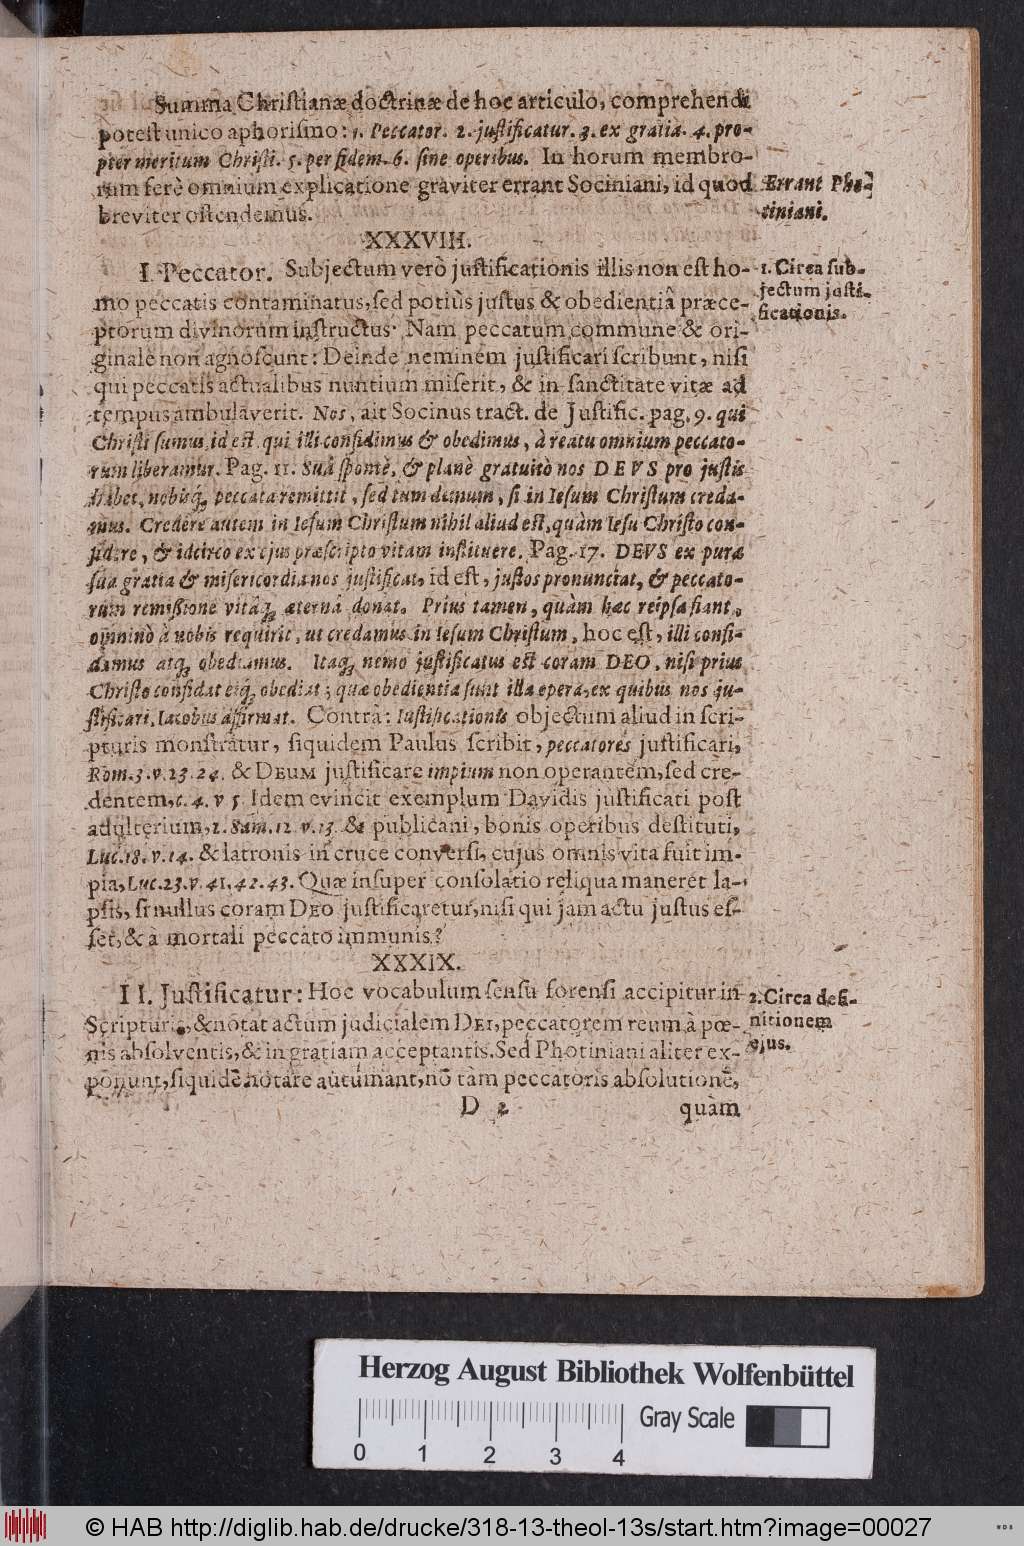 Summa Christianæ doctrinæ de hoc articulo, comprehendi
potest unico aphorismo: 1. Peccator. 2. justificatur. 3. ex gratia. 4. pro-
pter meritum Christi. 5. per fidem. 6. sine operibus. In horum membro-
rum ferè omnium explicatione graviter errant Sociniani, id quod
breviter ostendemus.
Errant Pho-
tiniani.
XXXVIII.
I. Peccator. Subjectum verò justificationis illis non est ho-
mo peccatis contaminatus, sed potiùs justus & obedientiâ præce-
ptorum divinorum instructus. Nam peccatum commune & ori-
ginale non agnoscunt: Deinde neminem justificari scribunt, nisi
qui peccatis actualibus nuntium miserit, & in sanctitate vitæ ad
tempus ambulaverit. Nos, ait Socinus tract. de Justific. pag. 9. qui
Christi sumus, id est qui illi confidimus & obedimus, à reatu omnium peccato-
rum liberamur. Pag. 11. Suâ spontè, & planè gratuitò nos DEVS pro justis
habet, nobisq; peccata remittit, sed tum demum, si in Iesum Christum creda-
mus. Credere autem in Iesum Christum nihil aliud est, quàm Iesu Christo con-
fidere, & idcirco ex ejus præscripto vitam instituere. Pag. 17. DEVS ex pura
sua gratia & misericordia nos justificat, id est, justos pronunciat, & peccato-
rum remissione vitáq; æternâ donat. Prius tamen, quàm hæc reipsa fiant,
omninò à nobis requirit, ut credamus in Iesum Christum, hoc est, illi confi-
damus atq; obediamus. Itaq; nemo justificatus est coram DEO, nisi prius
Christo confidat eiq; obediat; quæ obedientia sunt illa opera, ex quibus nos ju-
stificari, Iacobus affirmat. Contrà: Iustificationis objectum aliud in scri-
pturis monstratur, siquidem Paulus scribit, peccatores justificari,
Rom. 3. v. 23. 24. & DEUM justificare impium non operantem, sed cre-
dentem, c. 4. v 5. Idem evincit exemplum Davidis justificati post
adulterium, 2. Sam. 12 v. 13. & publicani, bonis operibus destituti,
Luc. 18. v. 14. & latronis in cruce conversi, cujus omnis vita fuit im-
pia, Luc. 23. v. 41. 42. 43. Quæ insuper consolatio reliqua maneret la-
psis, si nullus coram DEO justificaretur, nisi qui jam actu justus es-
set, & à mortali peccato immunis?
1. Circa sub-
jectum justi-
ficationis.
XXXIX.
II. Justificatur: Hoc vocabulum sensu forensi accipitur in
Scripturis, & notat actum judicialem DEI, peccatorem reum à pœ-
nis absolventis, & in gratiam acceptantis. Sed Photiniani aliter ex-
ponunt, siquidē notare autumant, nō tàm peccatoris absolutionē,
2. Circa defi-
nitionem
ejus.
D 2 quàm
Herzog August Bibliothek Wolfenbüttel
0 1 2 3 4 Gray Scale
© HAB http://diglib.hab.de/drucke/318-13-theol-13s/start.htm?image=00027